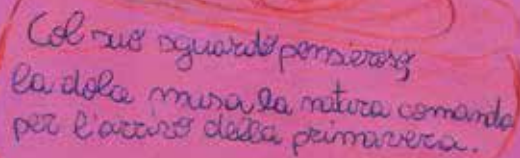 Col suo sguardo pensieroso,
la dolce musa la natura comanda
per l'arrivo della primavera.